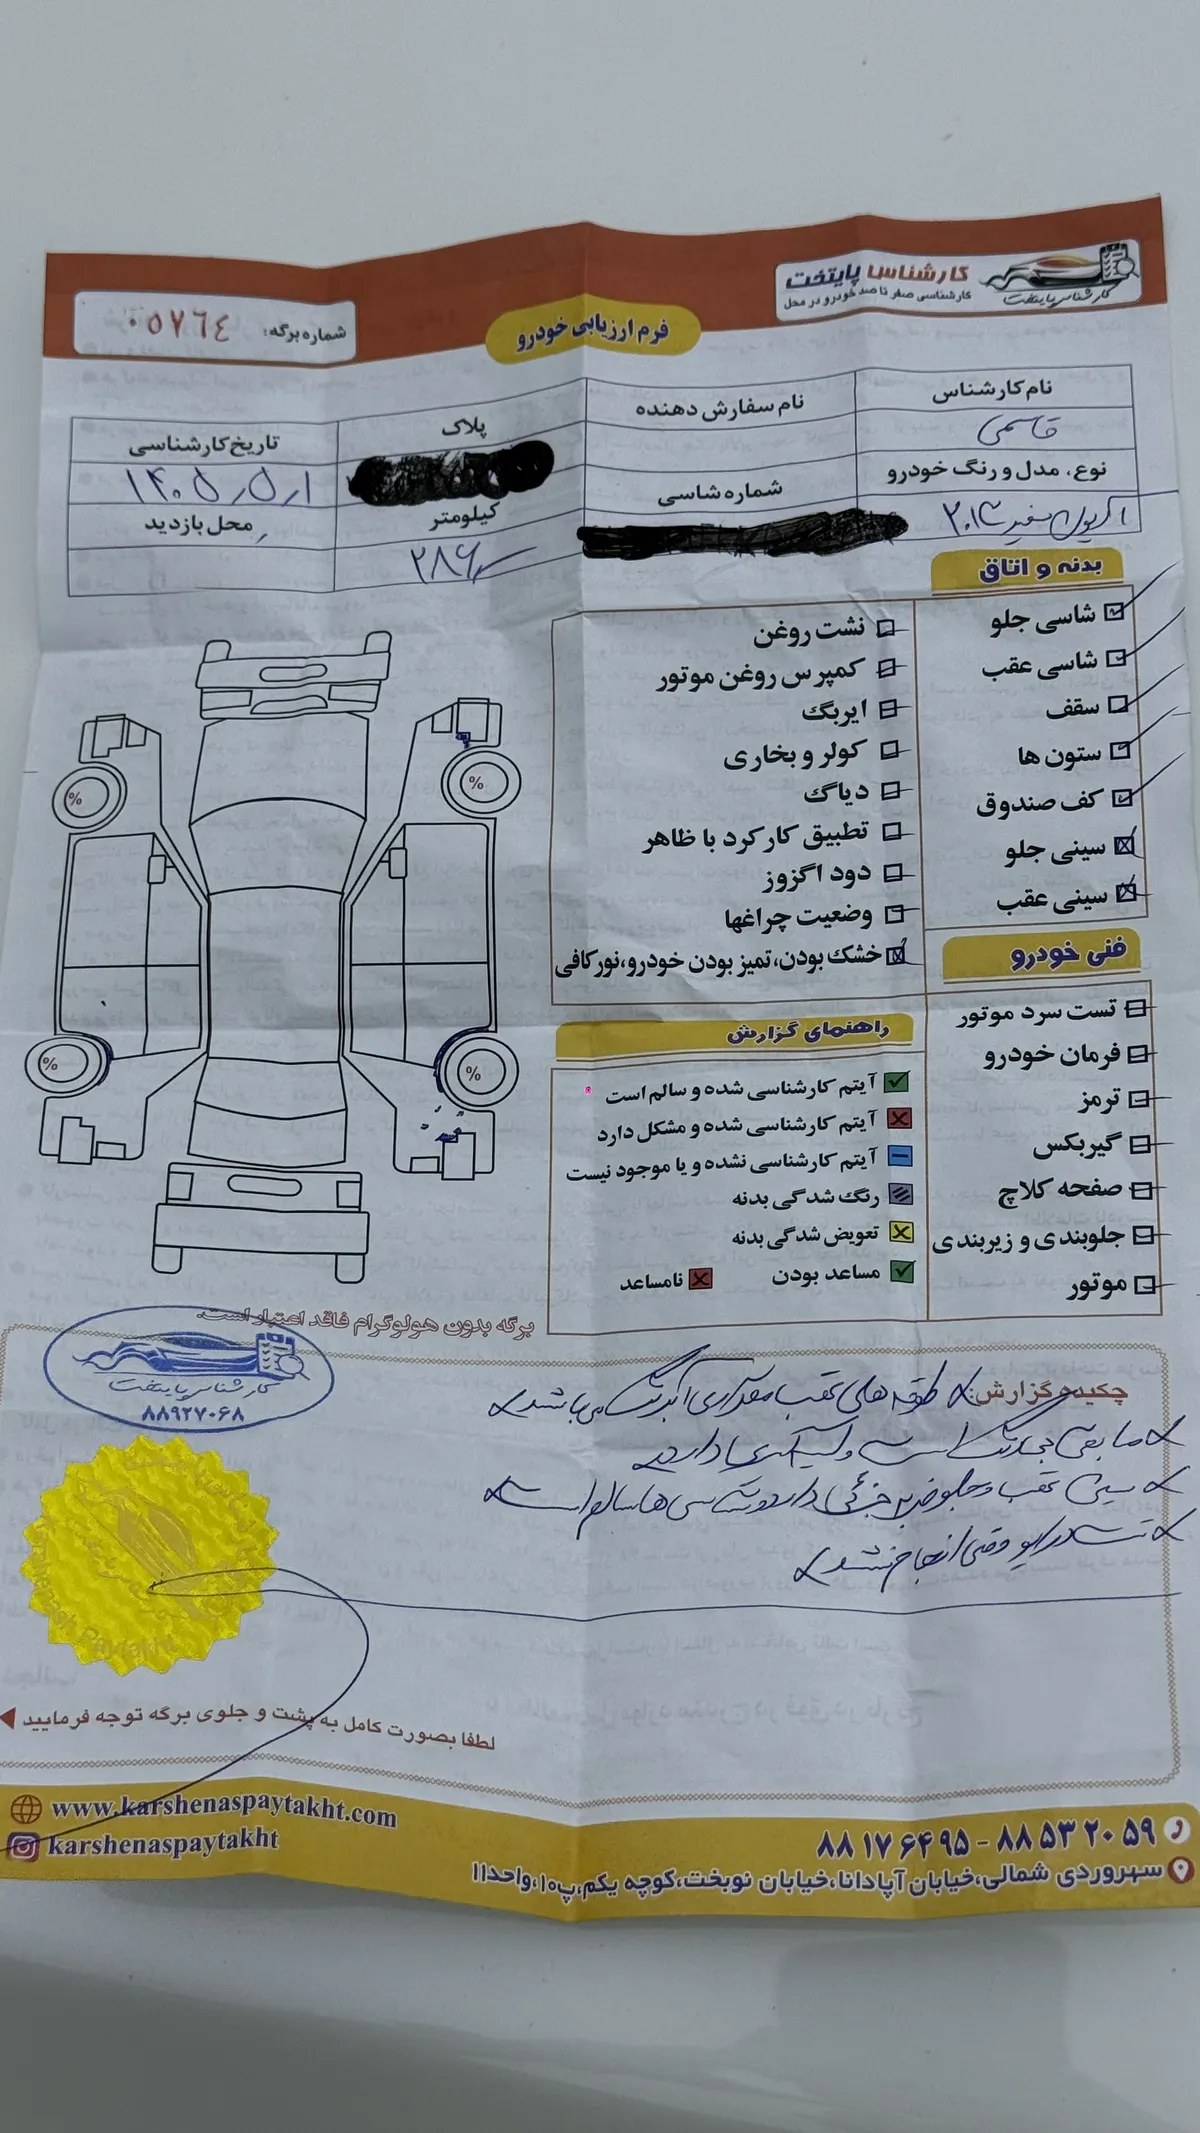 کارشناسی پایتخت
کارشناسی صفر تا صد خودرو در محل
کارشناس پایتخت
فرم ارزیابی خودرو
شماره برگه: ۰۵۷۶٤
نام کارشناس
نام سفارش دهنده
پلاک
تاریخ کارشناسی
قاسمی
۱۴۰۵،۵،۱
نوع، مدل و رنگ خودرو
شماره شاسی
کیلومتر
محل بازدید
اکتیون سفید ۲۰۱۲
۲۸۶۰۰۰
بدنه و اتاق
شاسی جلو
شاسی عقب
سقف
ستون ها
کف صندوق
سینی جلو
سینی عقب
فنی خودرو
تست سرد موتور
فرمان خودرو
ترمز
گیربکس
صفحه کلاچ
جلوبندی و زیربندی
موتور
نشت روغن
کمپرس روغن موتور
ایربگ
کولر و بخاری
دیاگ
تطبیق کارکرد با ظاهر
دود اگزوز
وضعیت چراغها
خشک بودن،تمیز بودن خودرو،نورکافی
راهنمای گزارش
آیتم کارشناسی شده و سالم است
آیتم کارشناسی شده و مشکل دارد
آیتم کارشناسی نشده و یا موجود نیست
رنگ شدگی بدنه
تعویض شدگی بدنه
مساعد بودن
نامساعد
%
%
%
%
برگه بدون هولوگرام فاقد اعتبار است.
کارشناس پایتخت
۸۸۹۲۷۰۶۸
چکیده گزارش:
طوقه های عقب مقداری آبرنگ می باشد
مابقی بی رنگ است و لیسه گیری دارد
سینی عقب و جلو ضربه جزئی دارد و شاسی ها سالم است
تست درایو و فنی انجام نشد
Paytakht
لطفا بصورت کامل به پشت و جلوی برگه توجه فرمایید
www.karshenaspaytakht.com
karshenaspaytakht
۸۸۱۷۶۴۹۵ - ۸۸۵۳۲۰۵۹
سهروردی شمالی،خیابان آپادانا،خیابان نوبخت،کوچه یکم،پ۱۰،واحد۱۱